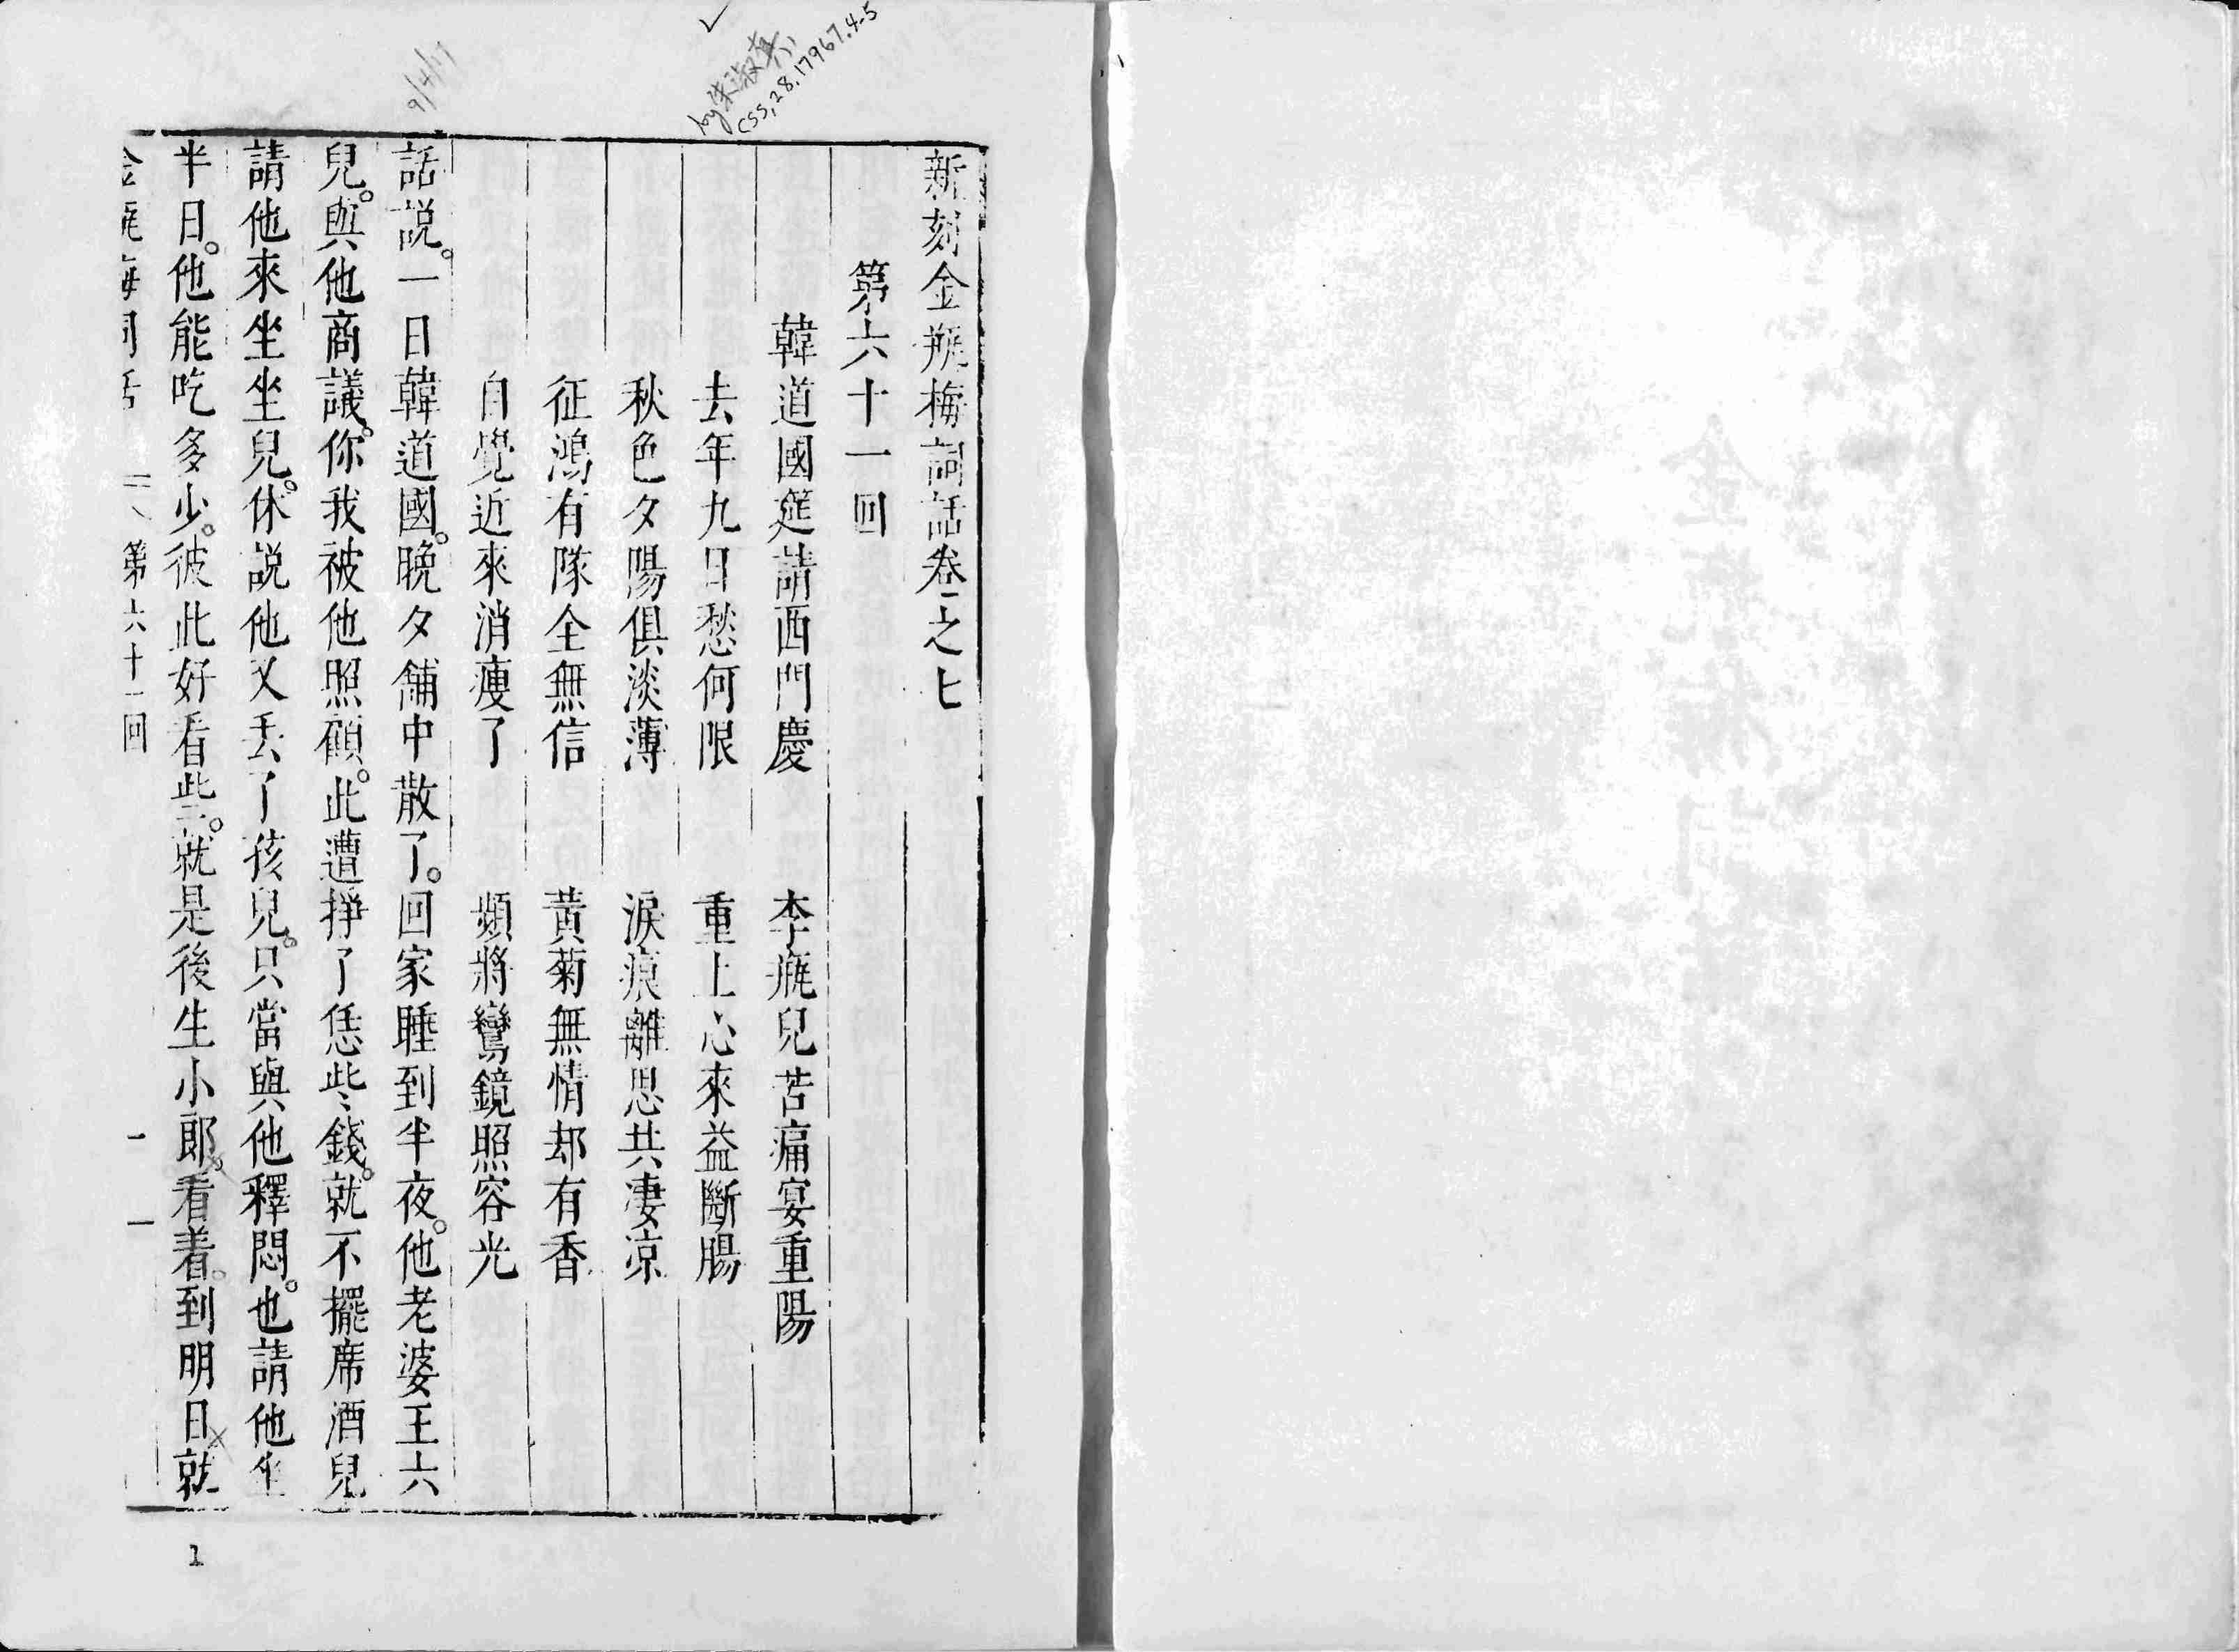 新刻金瓶梅詞話卷之七
第六十一回
韓道國筵請西門慶 李瓶兒苦痛宴重陽
去年九日愁何限 重上心來益斷腸
秋色夕陽俱淡薄 淚痕離思共凄凉
征鴻有隊全無信 黃菊無情却有香
自覺近來消瘦了 頻將鸞鏡照容光
話說。一日韓道國。晚夕舖中散了。回家睡到半夜。他老婆王六
兒。與他商議。你我被他照顧。此遭掙了恁些錢。就不擺席酒兒
請他來坐坐兒。休說他又丟了孩兒。只當與他釋悶。也請他坐
半日。他能吃多少。彼此好看些。就是後生小郎。看着。到明日就
金瓶梅詞話 第六十一回 一
1
9/4/17
by 朱淑真
CSS, 28.17967.4-5